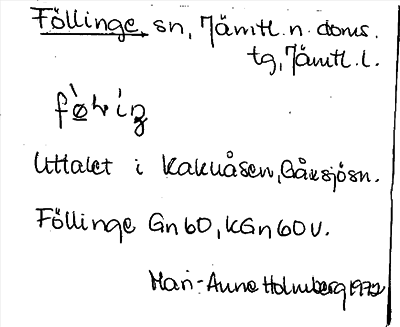 Föllinge sn, Jämtl. n. doms.
tg, Jämtl. l.
Uttalet i Kakuåsen, Gåxsjösn.
Föllinge Gn 60, KGn 60 V.
Mari-Anne Holmberg 1972